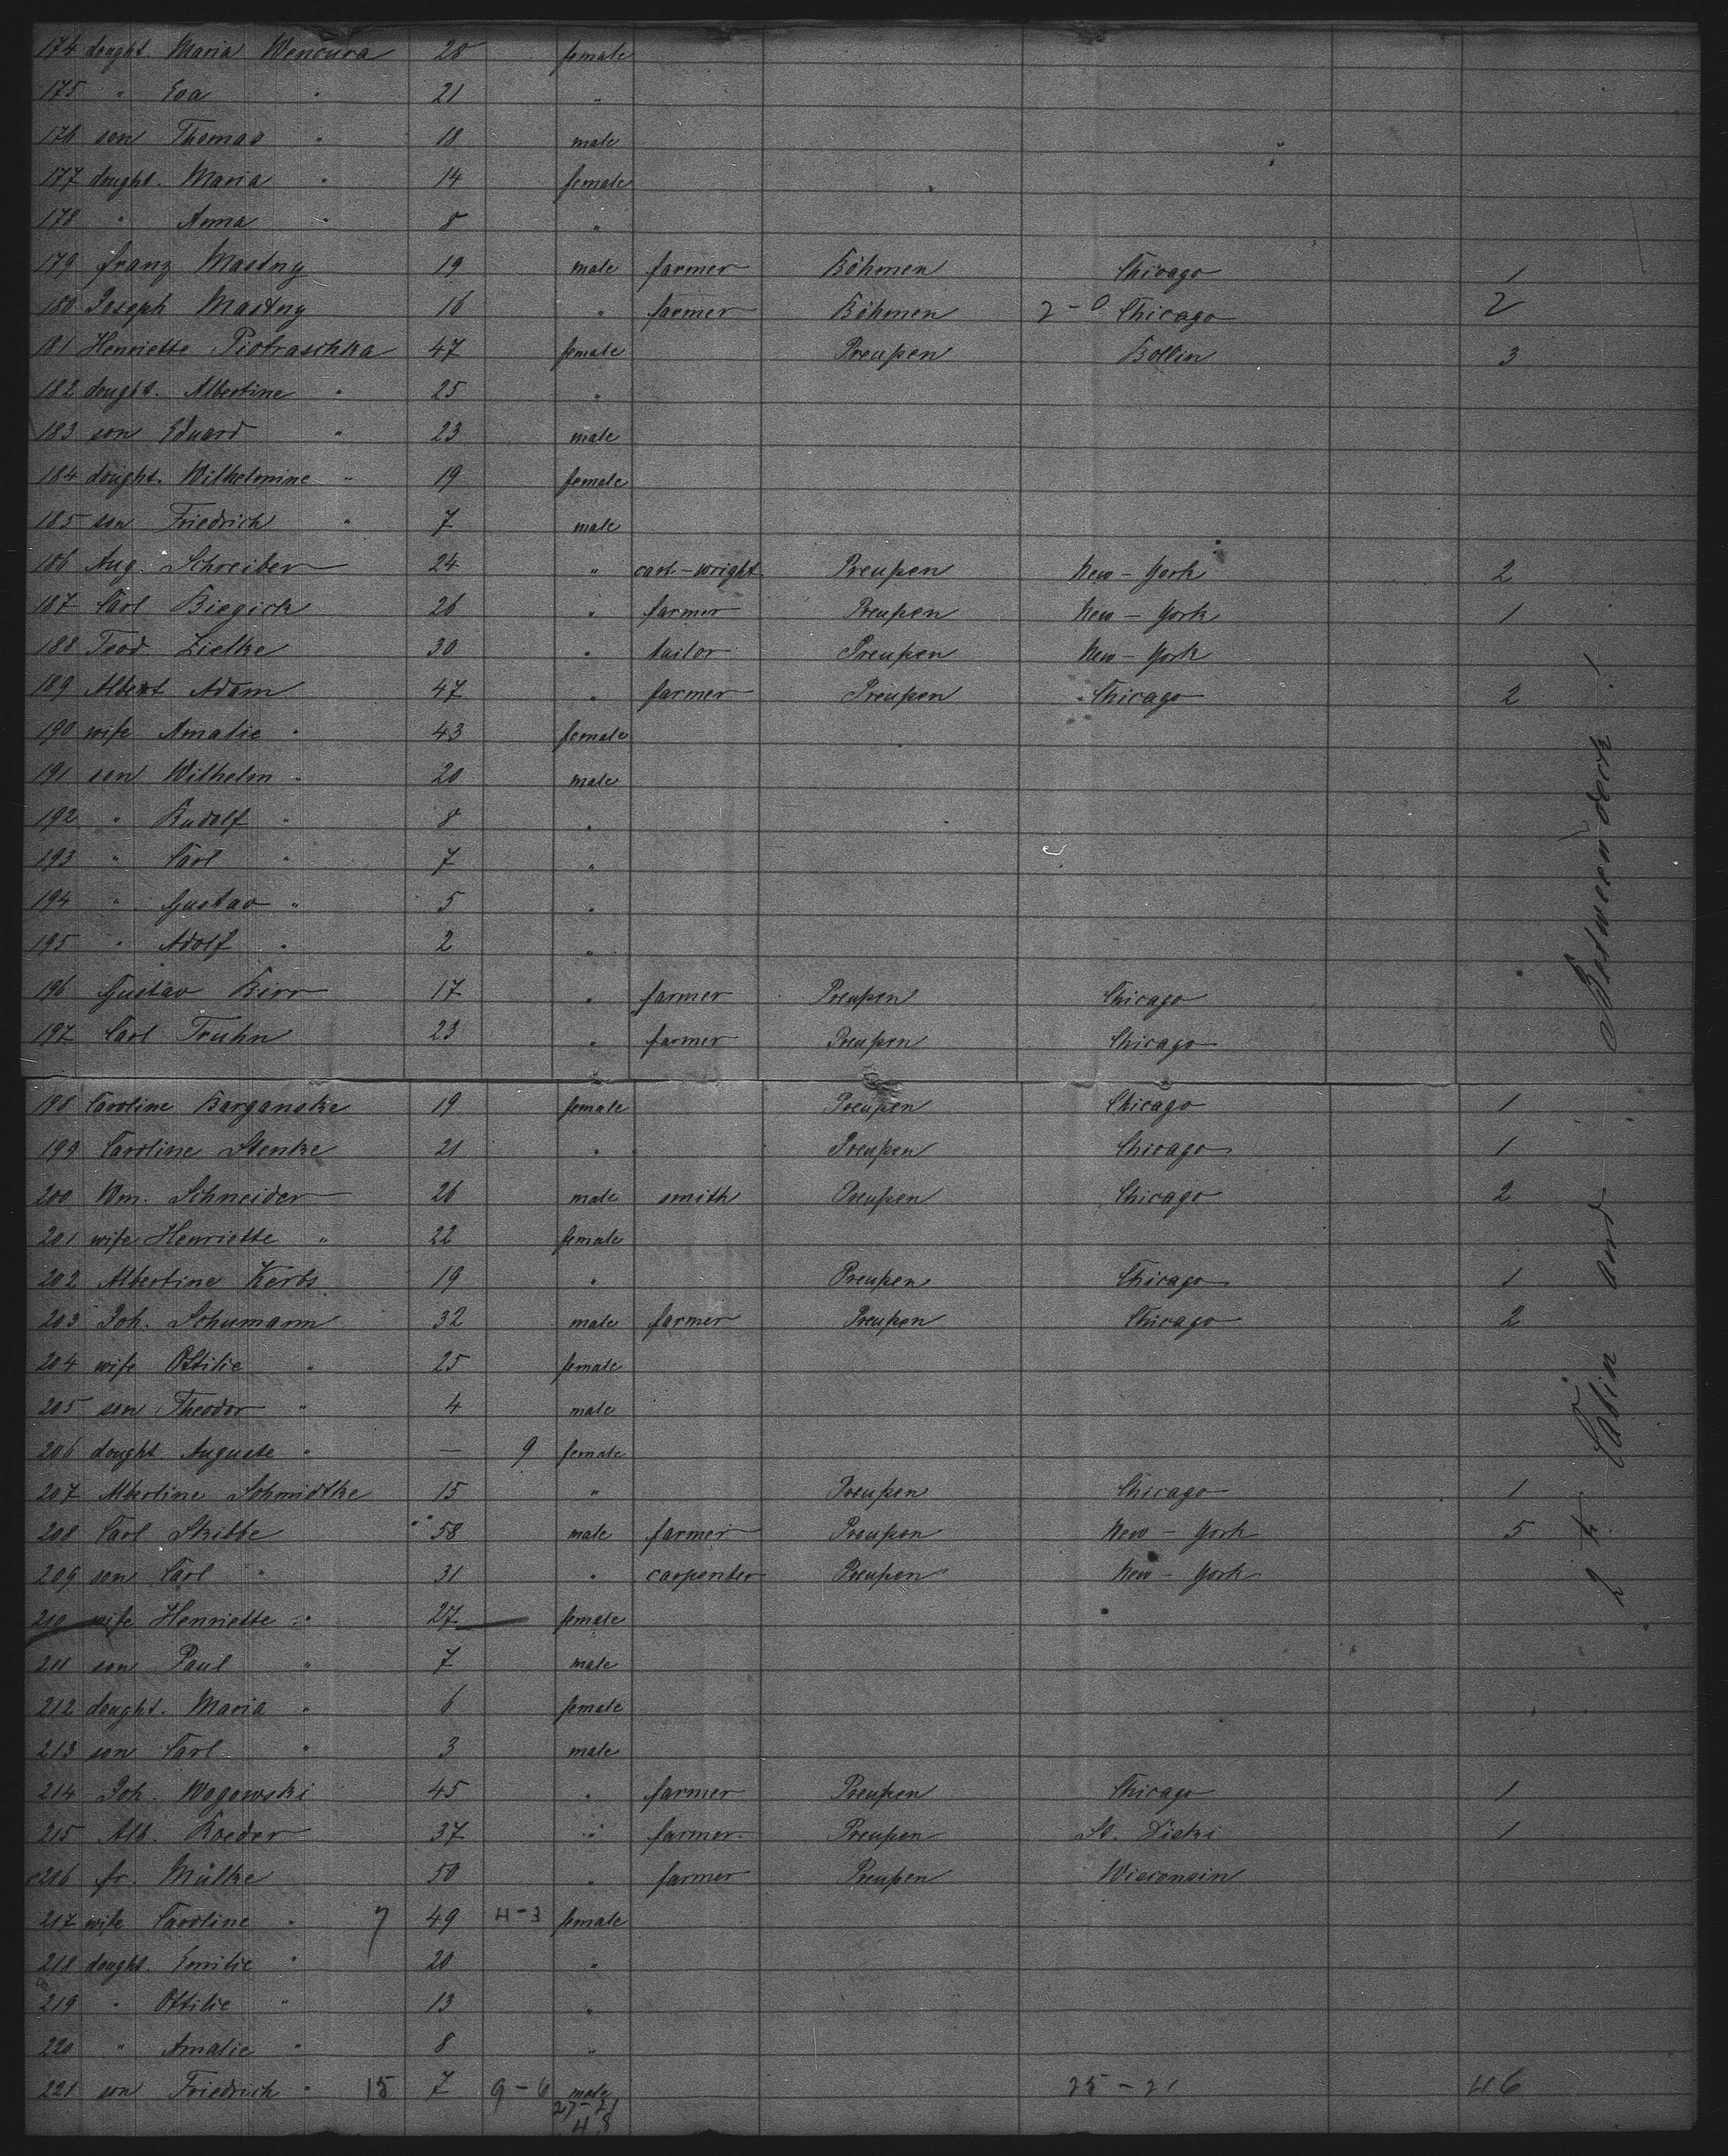 174 dought. Maria Wencura 28 female
175 " Eva " 21 "
176 son Thomas " 18 male
177 dought. Maria " 14 female
178 " Anna " 8 "
179 Franz Mastny 19 male farmer Böhmen Chicago 1
180 Joseph Mastny 16 " farmer Böhmen 2-0 Chicago 2
181 Henriette Piotraschka 47 female Preußen Bollin 3
182 dought. Albertine " 25 "
183 son Eduard " 23 male
184 dought. Wilhelmine " 19 female
185 son Friedrich " 7 male
186 Aug. Schreiber 24 " cart-wright Preußen New-York 2
187 Carl Biegick 26 " farmer Preußen New-York 1
188 Teod Lietke 30 " tailor Preußen New-York
189 Albert Adam 47 " farmer Preußen Chicago 2
190 wife Amalie " 43 female
191 son Wilhelm " 20 male
192 " Rudolf " 8 "
193 " Carl " 7 "
194 " Gustav " 5 "
195 " Adolf " 2 "
196 Gustav Birr 17 " farmer Preußen Chicago
197 Carl Truhn 23 " farmer Preußen Chicago
198 Caroline Barganske 19 female Preußen Chicago 1
199 Caroline Stenke 21 " Preußen Chicago 1
200 Wm. Schneider 26 male smith Preußen Chicago 2
201 wife Henriette " 22 female
202 Albertine Kerbs 19 " Preußen Chicago 1
203 Joh. Schumann 32 male farmer Preußen Chicago 2
204 wife Ottilie " 25 female
205 son Theodor " 4 male
206 dought. Auguste " — 9 female
207 Albertine Schmidtke 15 " Preußen Chicago 1
208 Carl Skibbe 58 male farmer Preußen New-York 5
209 son Carl " 31 " carpenter Preußen New-York
210 wife Henriette " 27 female
211 son Paul " 7 male
212 dought. Maria " 6 female
213 son Carl " 3 male
214 Joh. Wogowski 45 " farmer Preußen Chicago 1
215 Alb. Roeder 37 " farmer Preußen 1
216 fr. Mülke 50 " farmer Preußen Wisconsin
217 wife Caroline " 7 49 4-3 female
218 dought. Emilie " 20 "
219 " Ottilie " 13 "
220 " Amalie " 8 "
221 son Friedrich " 15 7 9-6 male 25-21 46
27-21
48
2 Cabin and Between deck